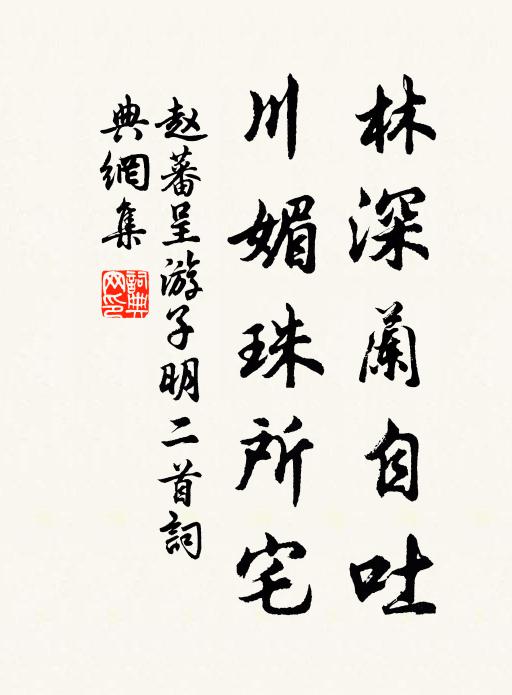 林深蘭自吐
川媚珠所宅
赵蕃呈游子明二首詞
典網集
詞典网印